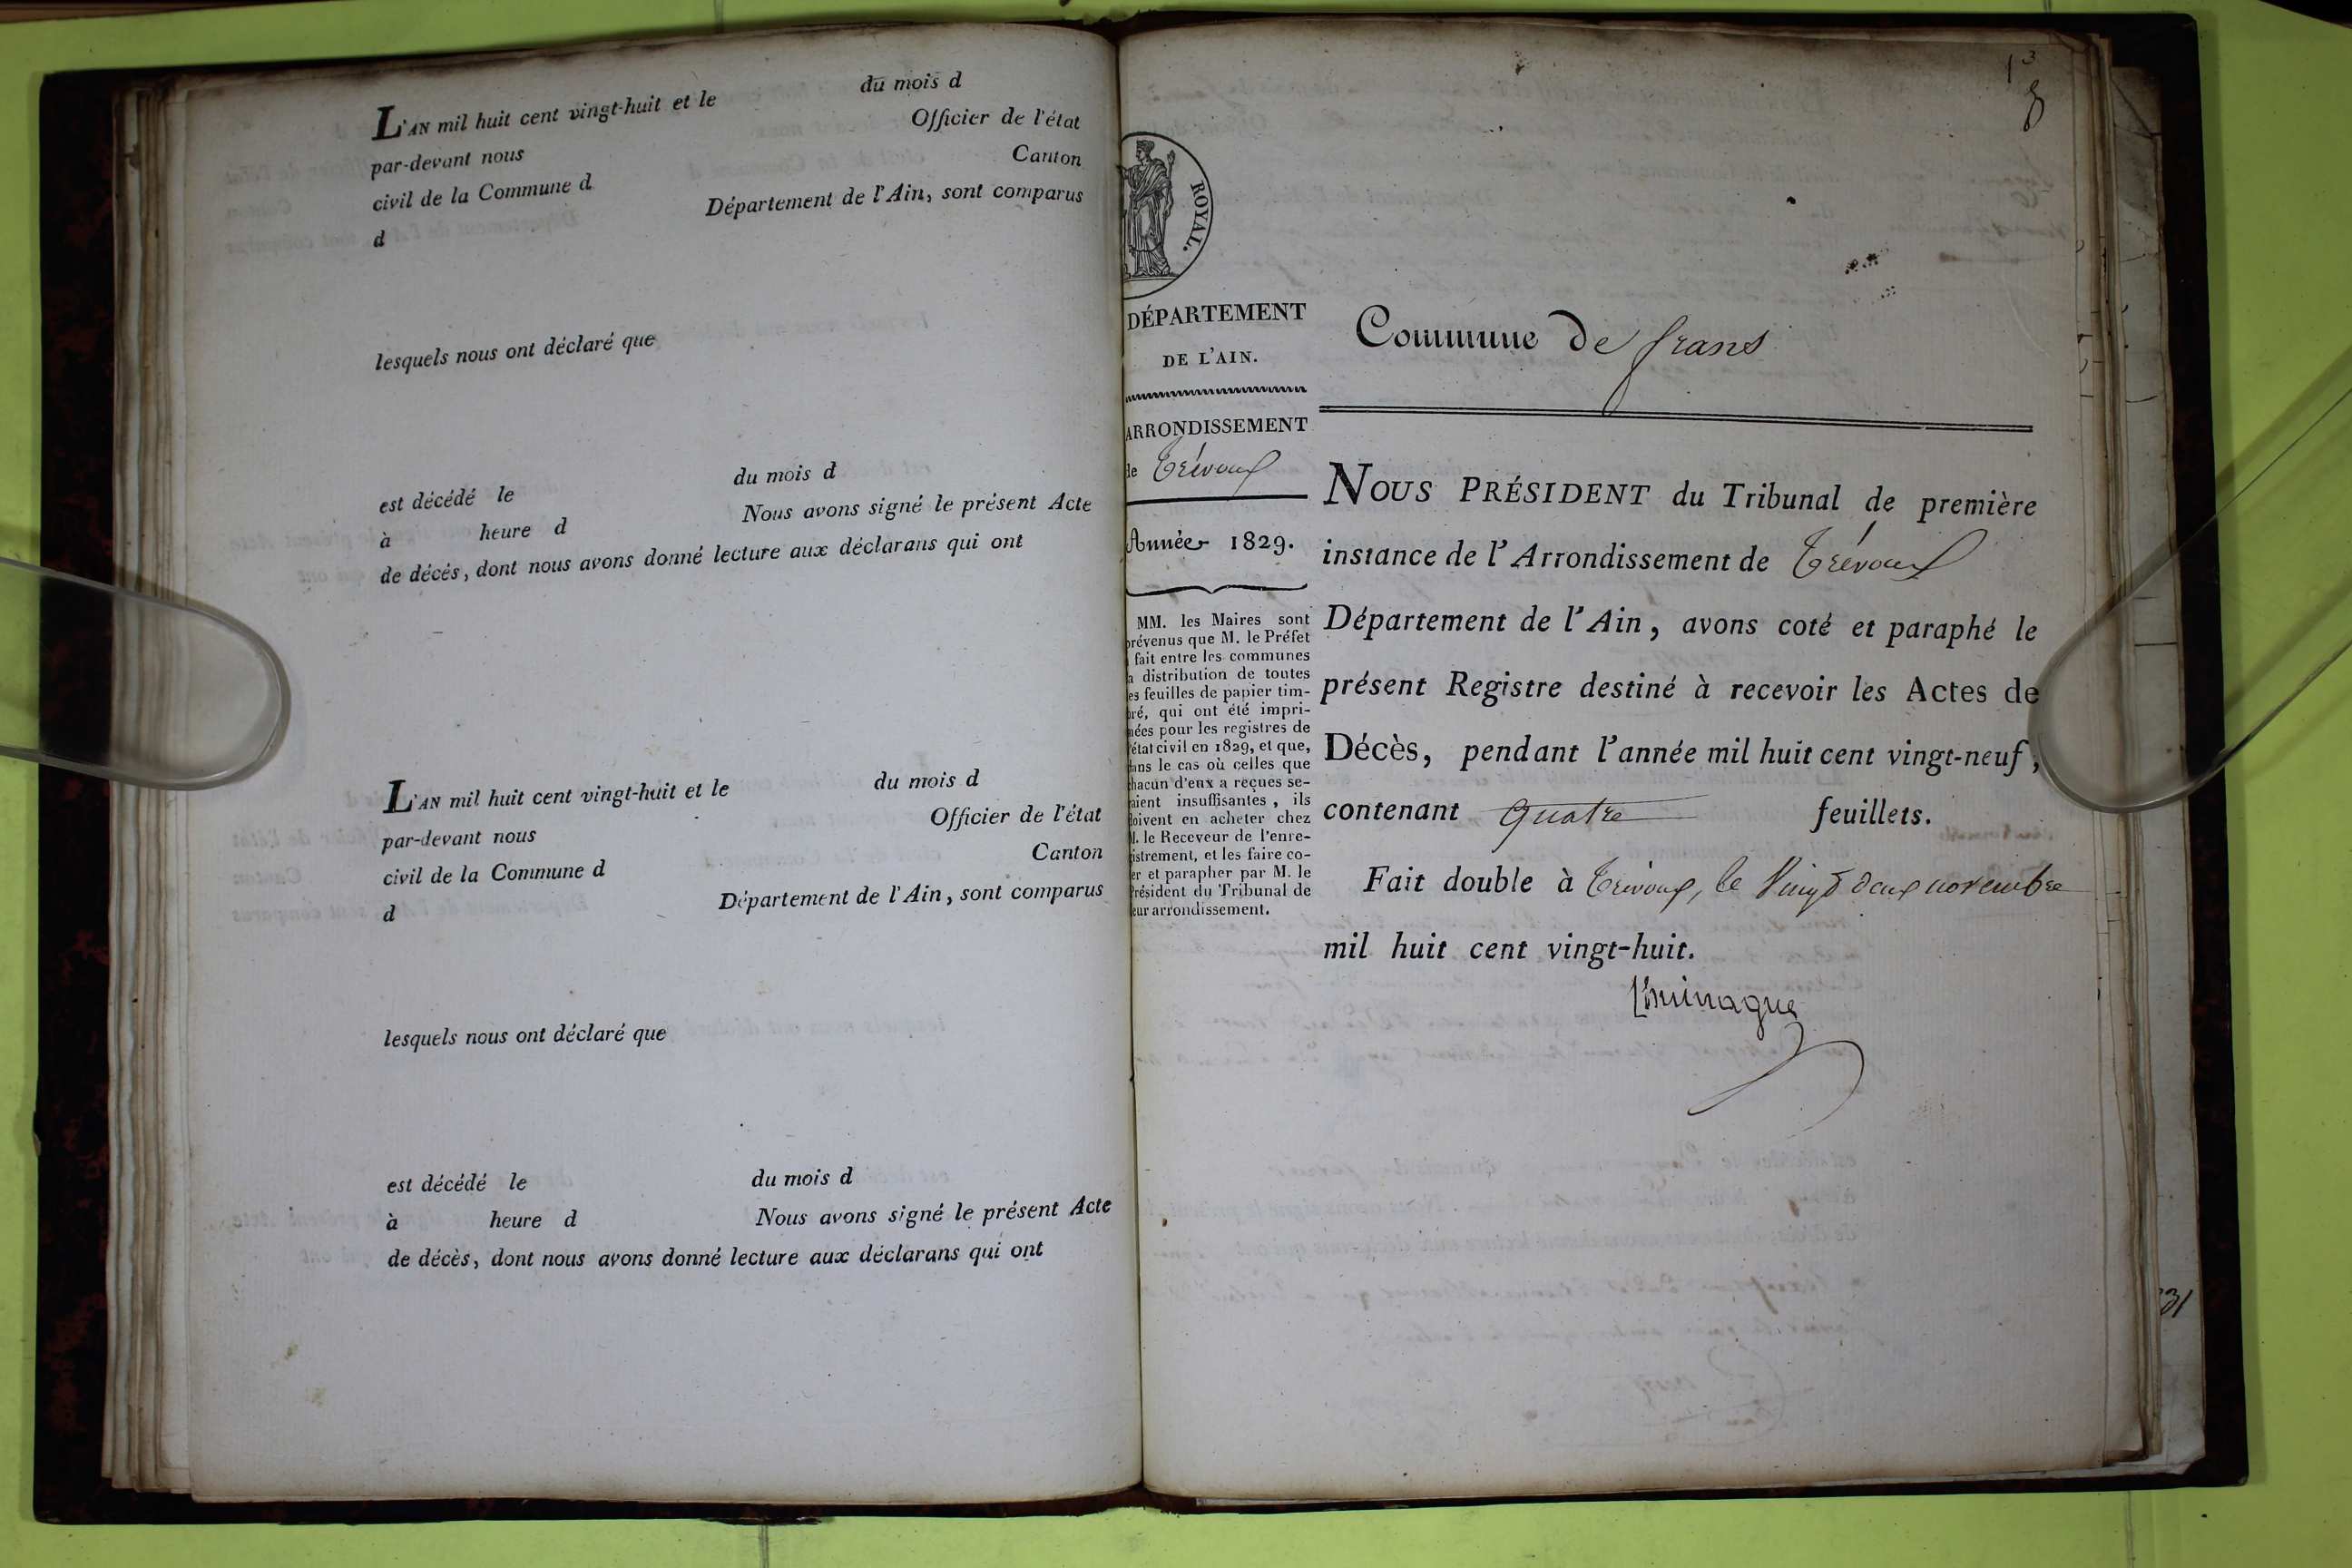 L'AN mil huit cent vingt-huit et le du mois d
par-devant nous Officier de l'état
civil de la Commune d Canton
d Département de l'Ain, sont comparus
lesquels nous ont déclaré que
est décédé le du mois d
à heure d Nous avons signé le présent Acte
de décès, dont nous avons donné lecture aux déclarans qui ont
L'AN mil huit cent vingt-huit et le du mois d
par-devant nous Officier de l'état
civil de la Commune d Canton
d Département de l'Ain, sont comparus
lesquels nous ont déclaré que
est décédé le du mois d
à heure d Nous avons signé le présent Acte
de décès, dont nous avons donné lecture aux déclarans qui ont
1er
ROYAL.
DÉPARTEMENT
DE L'AIN.
ARRONDISSEMENT
de Trévoux
Année 1829.
MM. les Maires sont
prévenus que M. le Préfet
a fait entre les communes
la distribution de toutes
les feuilles de papier tim-
bré, qui ont été impri-
mées pour les registres de
l'état civil en 1829, et que,
dans le cas où celles que
chacun d'eux a reçues se-
raient insuffisantes, ils
doivent en acheter chez
M. le Receveur de l'enre-
gistrement, et les faire co-
ter et parapher par M. le
Président du Tribunal de
leur arrondissement.
Commune de frans
NOUS PRÉSIDENT du Tribunal de première
instance de l'Arrondissement de Trévoux
Département de l'Ain, avons coté et paraphé le
présent Registre destiné à recevoir les Actes de
Décès, pendant l'année mil huit cent vingt-neuf,
contenant quatre feuillets.
Fait double à Trévoux, le Vingt deux novembre
mil huit cent vingt-huit.
31